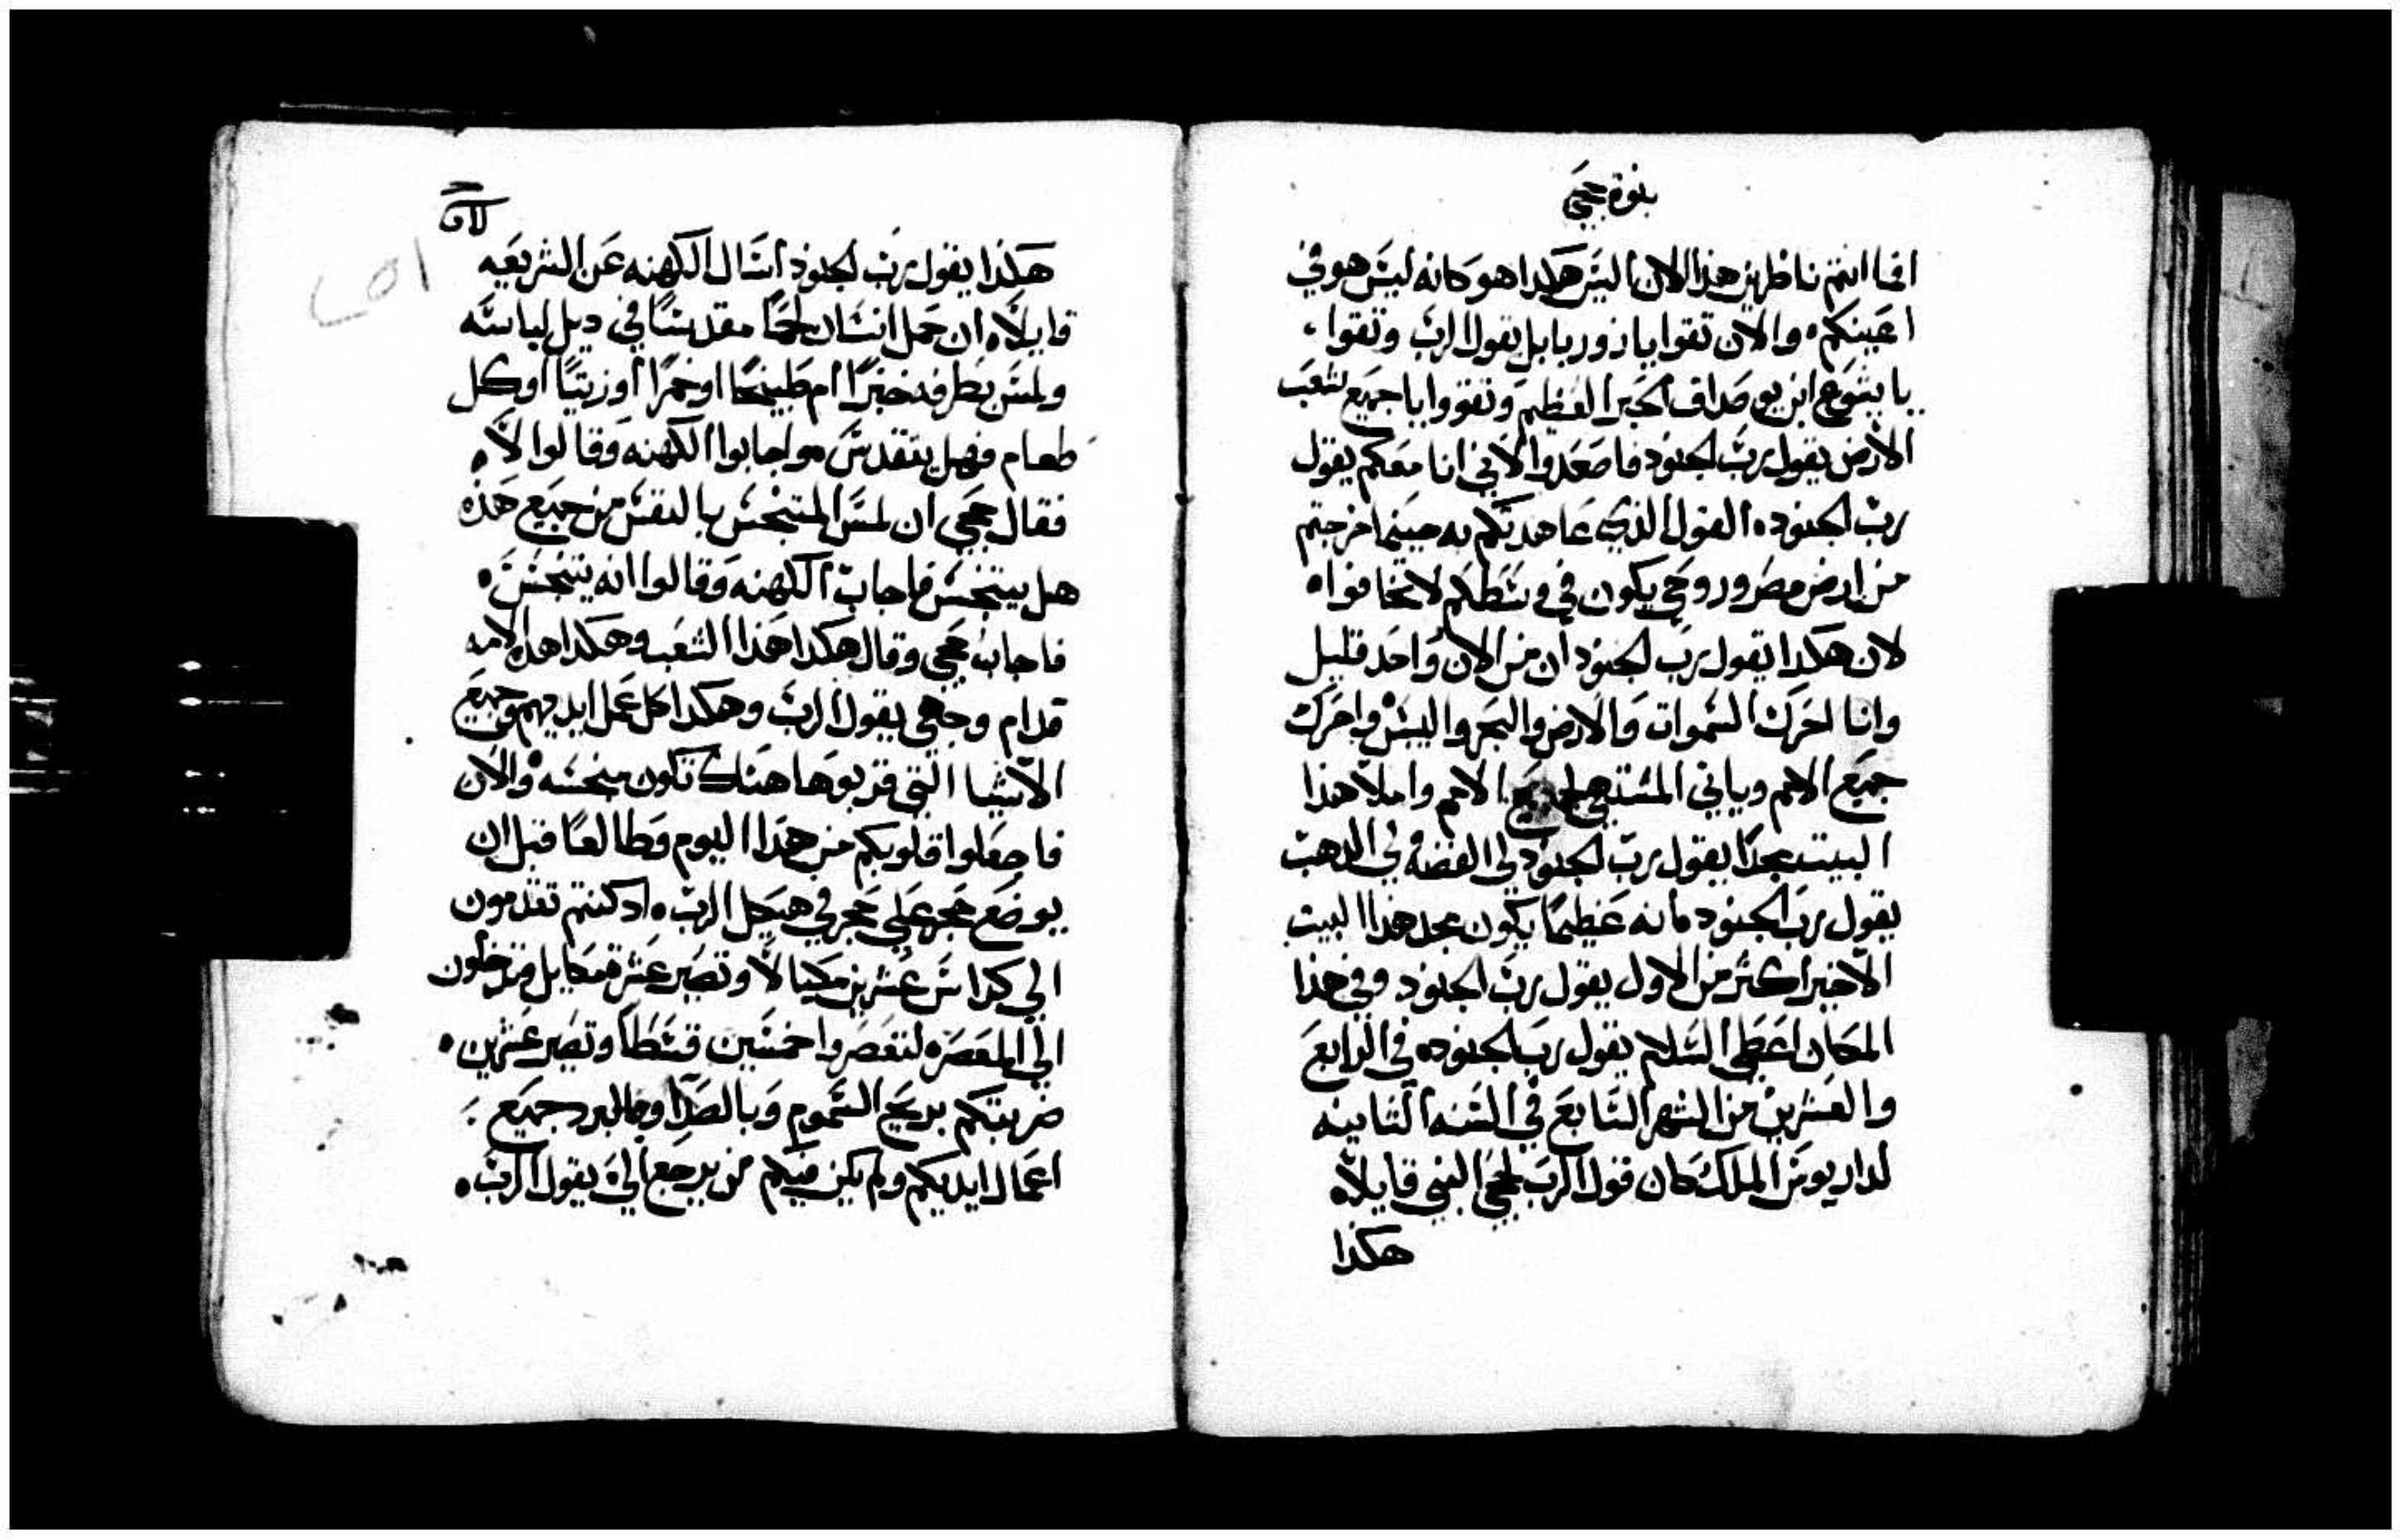 بنوة حجي
انما انتم ناظرين هذا الان اليس هكدا هو كانه ليس هو في
اعينكم والان تقوا يا زوربابل يقول الرب وتقوا
يا يشوع ابن يوصداق الحبر العظيم وتقووا يا جميع شعب
الارض يقول رب الجنود فاصعدوا لاني انا معكم يقول
رب الجنود القول الذي عاهدتكم به حينما خرجتم
من ارض مصر وروحي يكون في وسطكم لا تخافوا
لان هكدا يقول رب الجنود ان من الان واحد قليل
وانا احرك السموات والارض والبحر واليبس واحرك
جميع الامم وياتي المشتهي لجميع الامم واملا هذا
البيت مجدا يقول رب الجنود لي الفضة لي الدهب
يقول رب الجنود فانه عظيما يكون مجد هذا البيت
الاخير اكثر من الاول يقول رب الجنود وفي هذا
المكان اعطي السلام يقول رب الجنود في الرابع
والعشرين من الشهر التاسع في السنه الثانيه
لداريوس الملك كان قول الرب لحجي النبي قايلا
هكدا
هكذا يقول رب الجنود اسال الكهنه عن الشريعه
قايلا ان حمل انسان لحما مقدسا في ديل لباسه
ولمس بطرفه خبزا ام طبيخا او خمرا او زيتا او كل
طعام فهل يتقدس فاجابوا الكهنه وقالوا لا
فقال حجي ان لمس المتنجس بالنفس من جميع هذه
هل يتنجس فاجاب الكهنه وقالوا انه يتنجس
فاجاب حجي وقال هكدا هذا الشعب وهكدا هذه الامه
قدام وجهي يقول الرب وهكدا كل عمل ايديهم وجميع
الاشيا التي قربوها هناك تكون منجسه والان
فاجعلوا قلوبكم من هذا اليوم وطالعا قبل ان
يوضع حجر علي حجر في هيكل الرب اد كنتم تقدمون
الي كداس عشرين مكيالا وتصير عشرة مكاييل وتدخلون
الي المعصره لتعصروا خمسين قسطا وتصير عشرين
ضربتكم بريح السموم وبالصدا وبالبرد جميع
اعمال ايديكم ولم يكن فيكم من يرجع الي يقول الرب